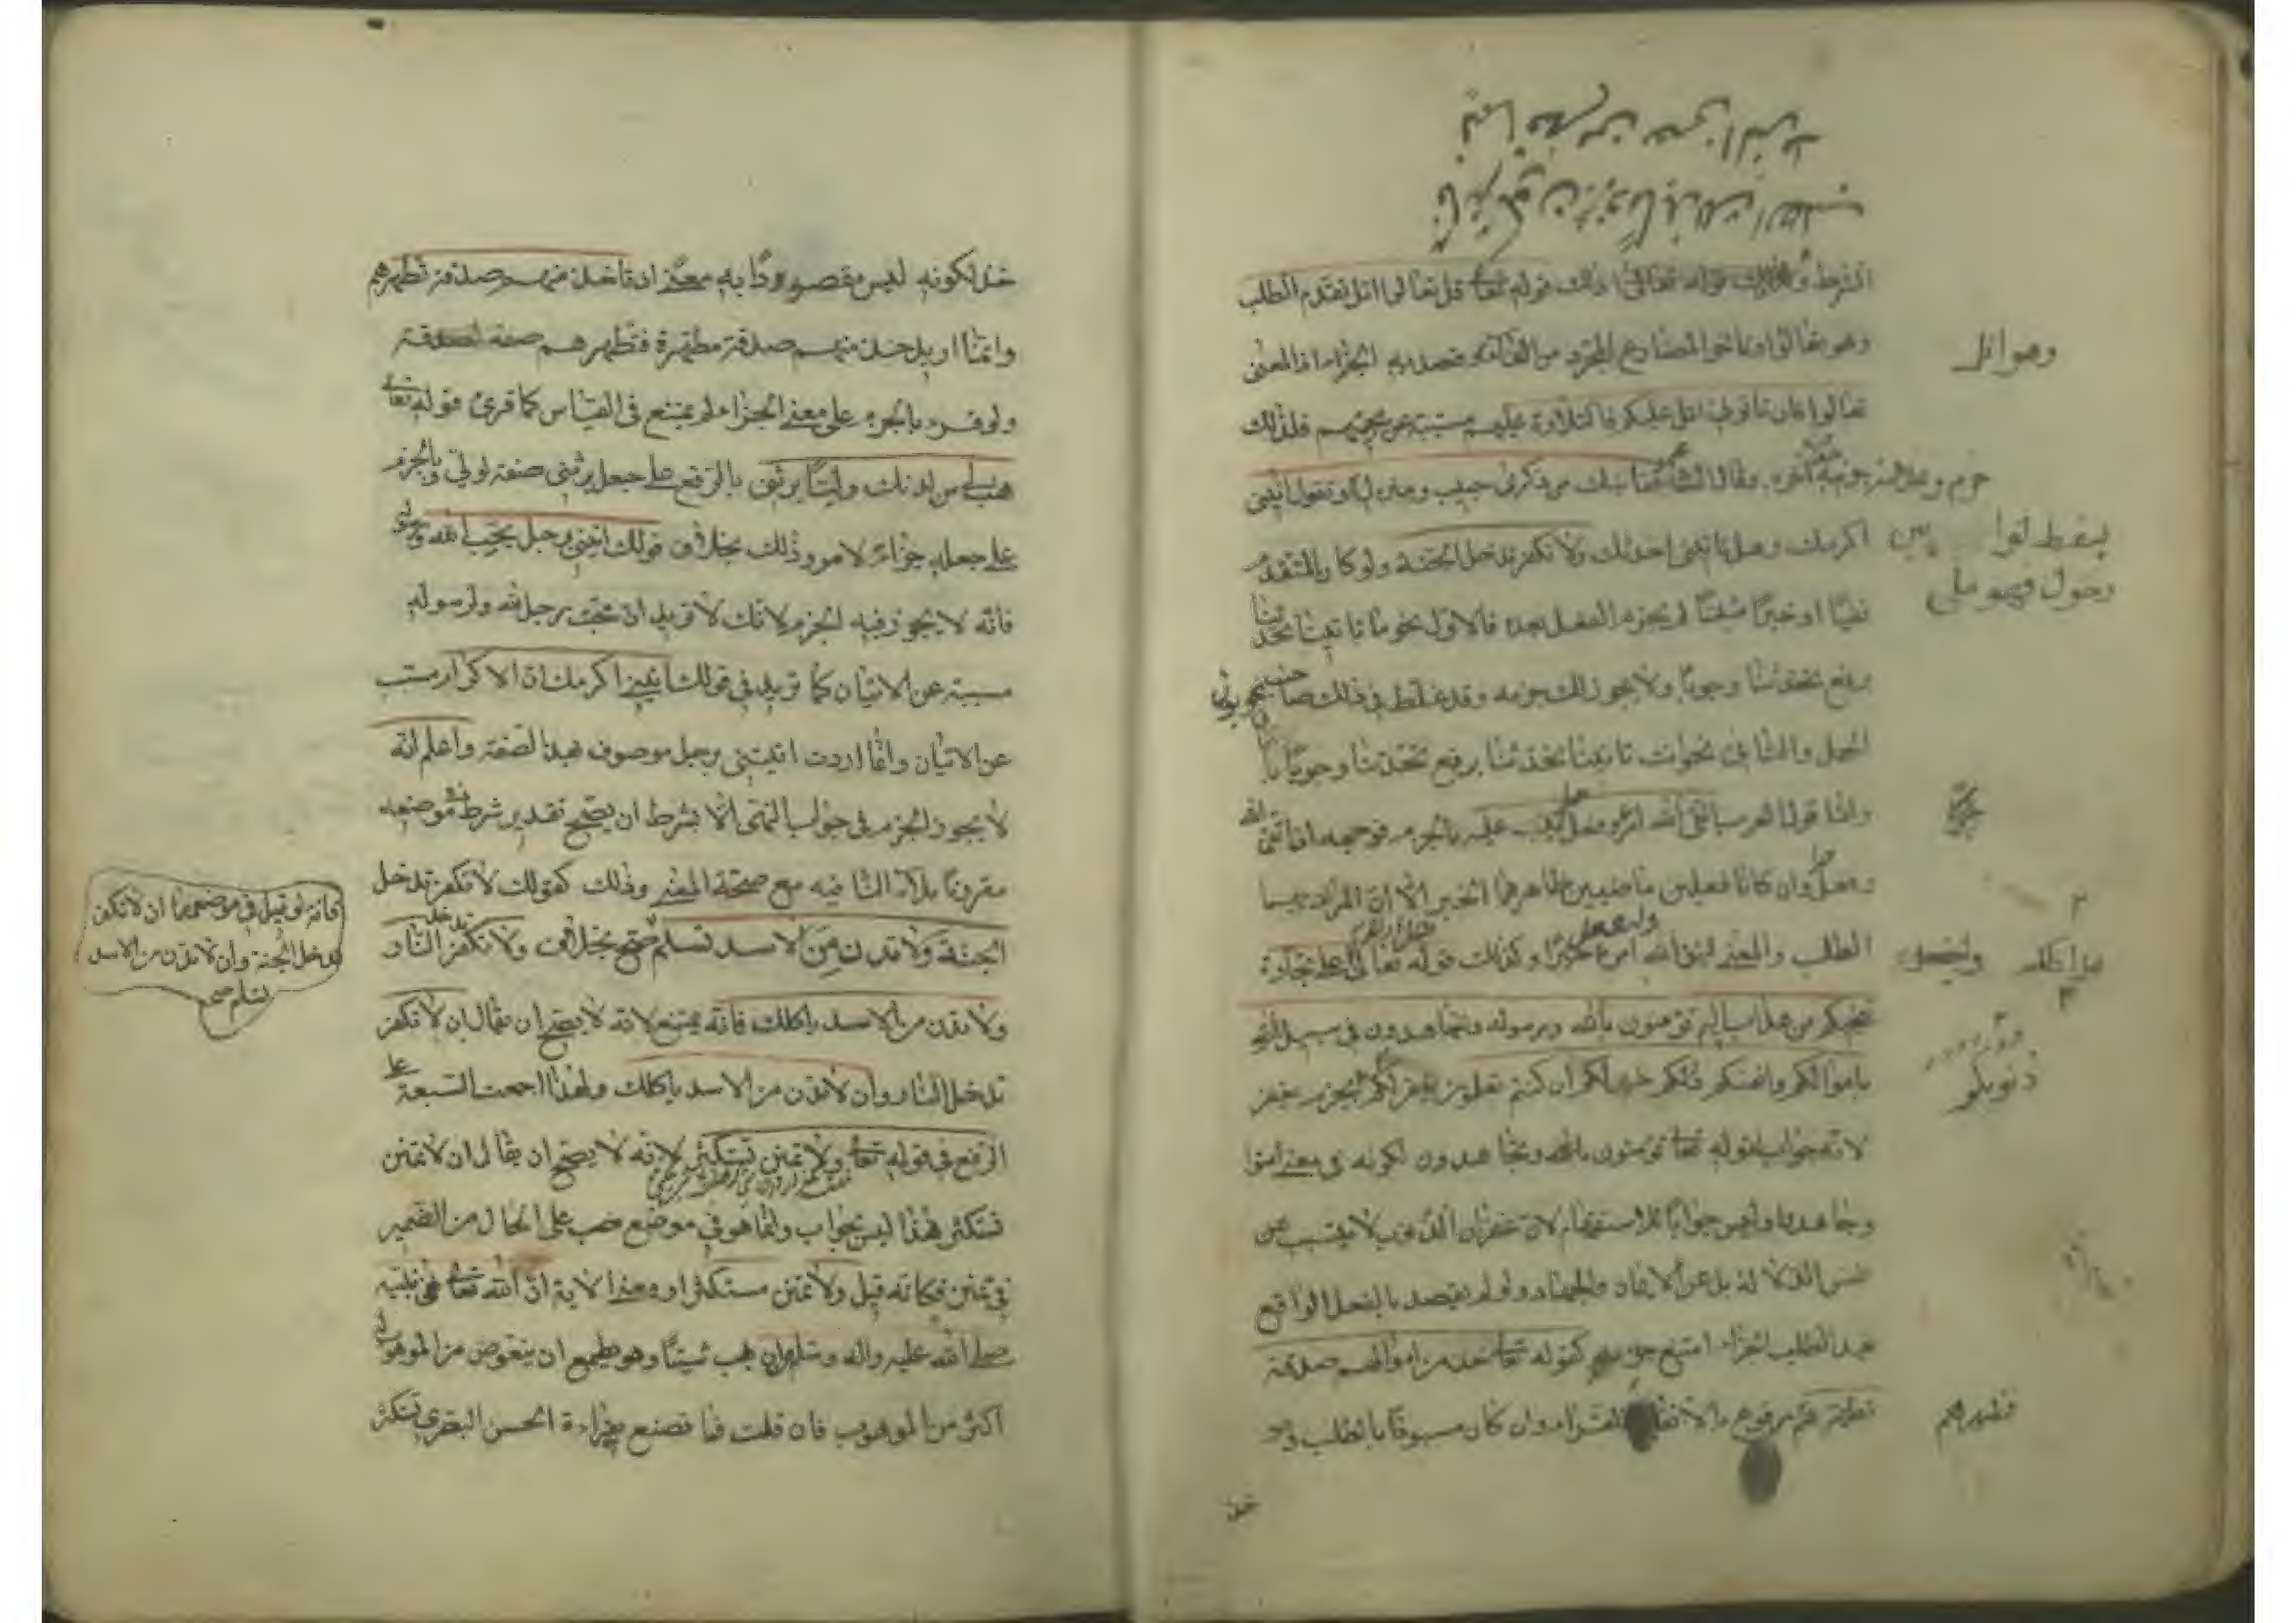 الشرط وذلك قوله تعالى قل تعالوا اتل تقدم الطلب
وهو تعالوا وتاخر المضارع المجرد من الفاء وقصد به الجزاء اذ المعنى
تعالوا فان تاتوا اتل عليكم فالتلاوة عليهم مسببة عن مجيئهم فلذلك
جزم وعلامة جزمه حذف آخره وقال الشاعر قفا نبك من ذكرى حبيب ومنزل وتقول ائتني
اكرمك وهل تاتيني احدثك ولا تكفر تدخل الجنة ولو كان المتقدم
نفيا او خبرا مثبتا لم يجزم الفعل بعده فالاول نحو ما تاتينا تحدثنا
برفع تحدثنا وجوبا ولا يجوز لك جزمه وقد غلط في ذلك صاحب
الجمل والثاني نحو انت تاتينا تحدثنا برفع تحدثنا وجوبا
واما قول العرب اتقى الله امرؤ فعل خيرا يثب عليه بالجزم فوجهه ان اتقى الله
وفعل وان كانا فعلين ماضيين ظاهرهما الخبر الا ان المراد بهما
الطلب والمعنى ليتق الله امرؤ وليفعل خيرا وكذلك قوله تعالى هل ادلكم على تجارة
تنجيكم من عذاب اليم تؤمنون بالله ورسوله وتجاهدون في سبيل الله
باموالكم وانفسكم ذلكم خير لكم ان كنتم تعلمون يغفر لكم بجزم يغفر
لانه جواب لقوله تعالى تؤمنون بالله وتجاهدون لكونه في معنى آمنوا
وجاهدوا وليس جوابا للاستفهام لان غفران الذنوب لا يتسبب عن
نفس الدلالة بل عن الايمان والجهاد ولو لم يقصد بالفعل الواقع
بعد الطلب الجزاء امتنع جزمه كقوله تعالى خذ من اموالهم صدقة
تطهرهم فتطهرهم مرفوع باتفاق القراء وان كان مسبوقا بالطلب وهو
خذ
وهو اتل
ذنوبكم
فتطهرهم
خذ لكونه ليس مقصودا به معنى ان تاخذ منهم صدقة تطهرهم
وانما اريد خذ منهم صدقة مطهرة فتطهرهم صفة لصدقة
ولو قرء بالجزم على معنى الجزاء لم يمتنع في القياس كما قرئ قوله تعالى
فهب لي من لدنك وليا يرثني بالرفع على جعل يرثني صفة لوليا وبالجزم
على جعله جزاء للامر وذلك بخلاف قولك ائتني برجل يحب الله ورسوله
فانه لا يجوز فيه الجزم لانك لا تريد ان محبة رجل لله ولرسوله
مسببة عن الاتيان كما تريد في قولك ائتني اكرمك ان الاكرام مسبب
عن الاتيان وانما اردت ائتني برجل موصوف بهذا الصفة واعلم انه
لا يجوز الجزم في جواب النهي الا بشرط ان يصح تقدير شرط في موضعه
مقرونا بلا النافيه مع صحة المعنى وذلك كقولك لا تكفر تدخل
الجنة ولا تدن من الاسد تسلم بخلاف ولا تكفر تدخل النار
ولا تدن من الاسد ياكلك فانه يمتنع لانه لا يصح ان يقال ان لا تكفر
تدخل النار وان لا تدن من الاسد ياكلك ولهذا اجمعت السبعة على
الرفع في قوله تعالى ولا تمنن تستكثر لانه لا يصح ان يقال ان لا تمنن
تستكثر فهذا ليس بجواب وانما هو في موضع نصب على الحال من الضمير
في تمنن فكانه قيل ولا تمنن مستكثرا ومعنى الاية ان الله تعالى نهى نبيه
صلى الله عليه واله وسلم ان يهب شيئا وهو يطمع ان يتعوض من الموهوب له
اكثر من الموهوب فان قلت فما تصنع بقراءة الحسن البصري تستكثر
فانه لو قيل في موضعهما ان لا تكفر
تدخل الجنة وان لا تدن من الاسد
تسلم صح